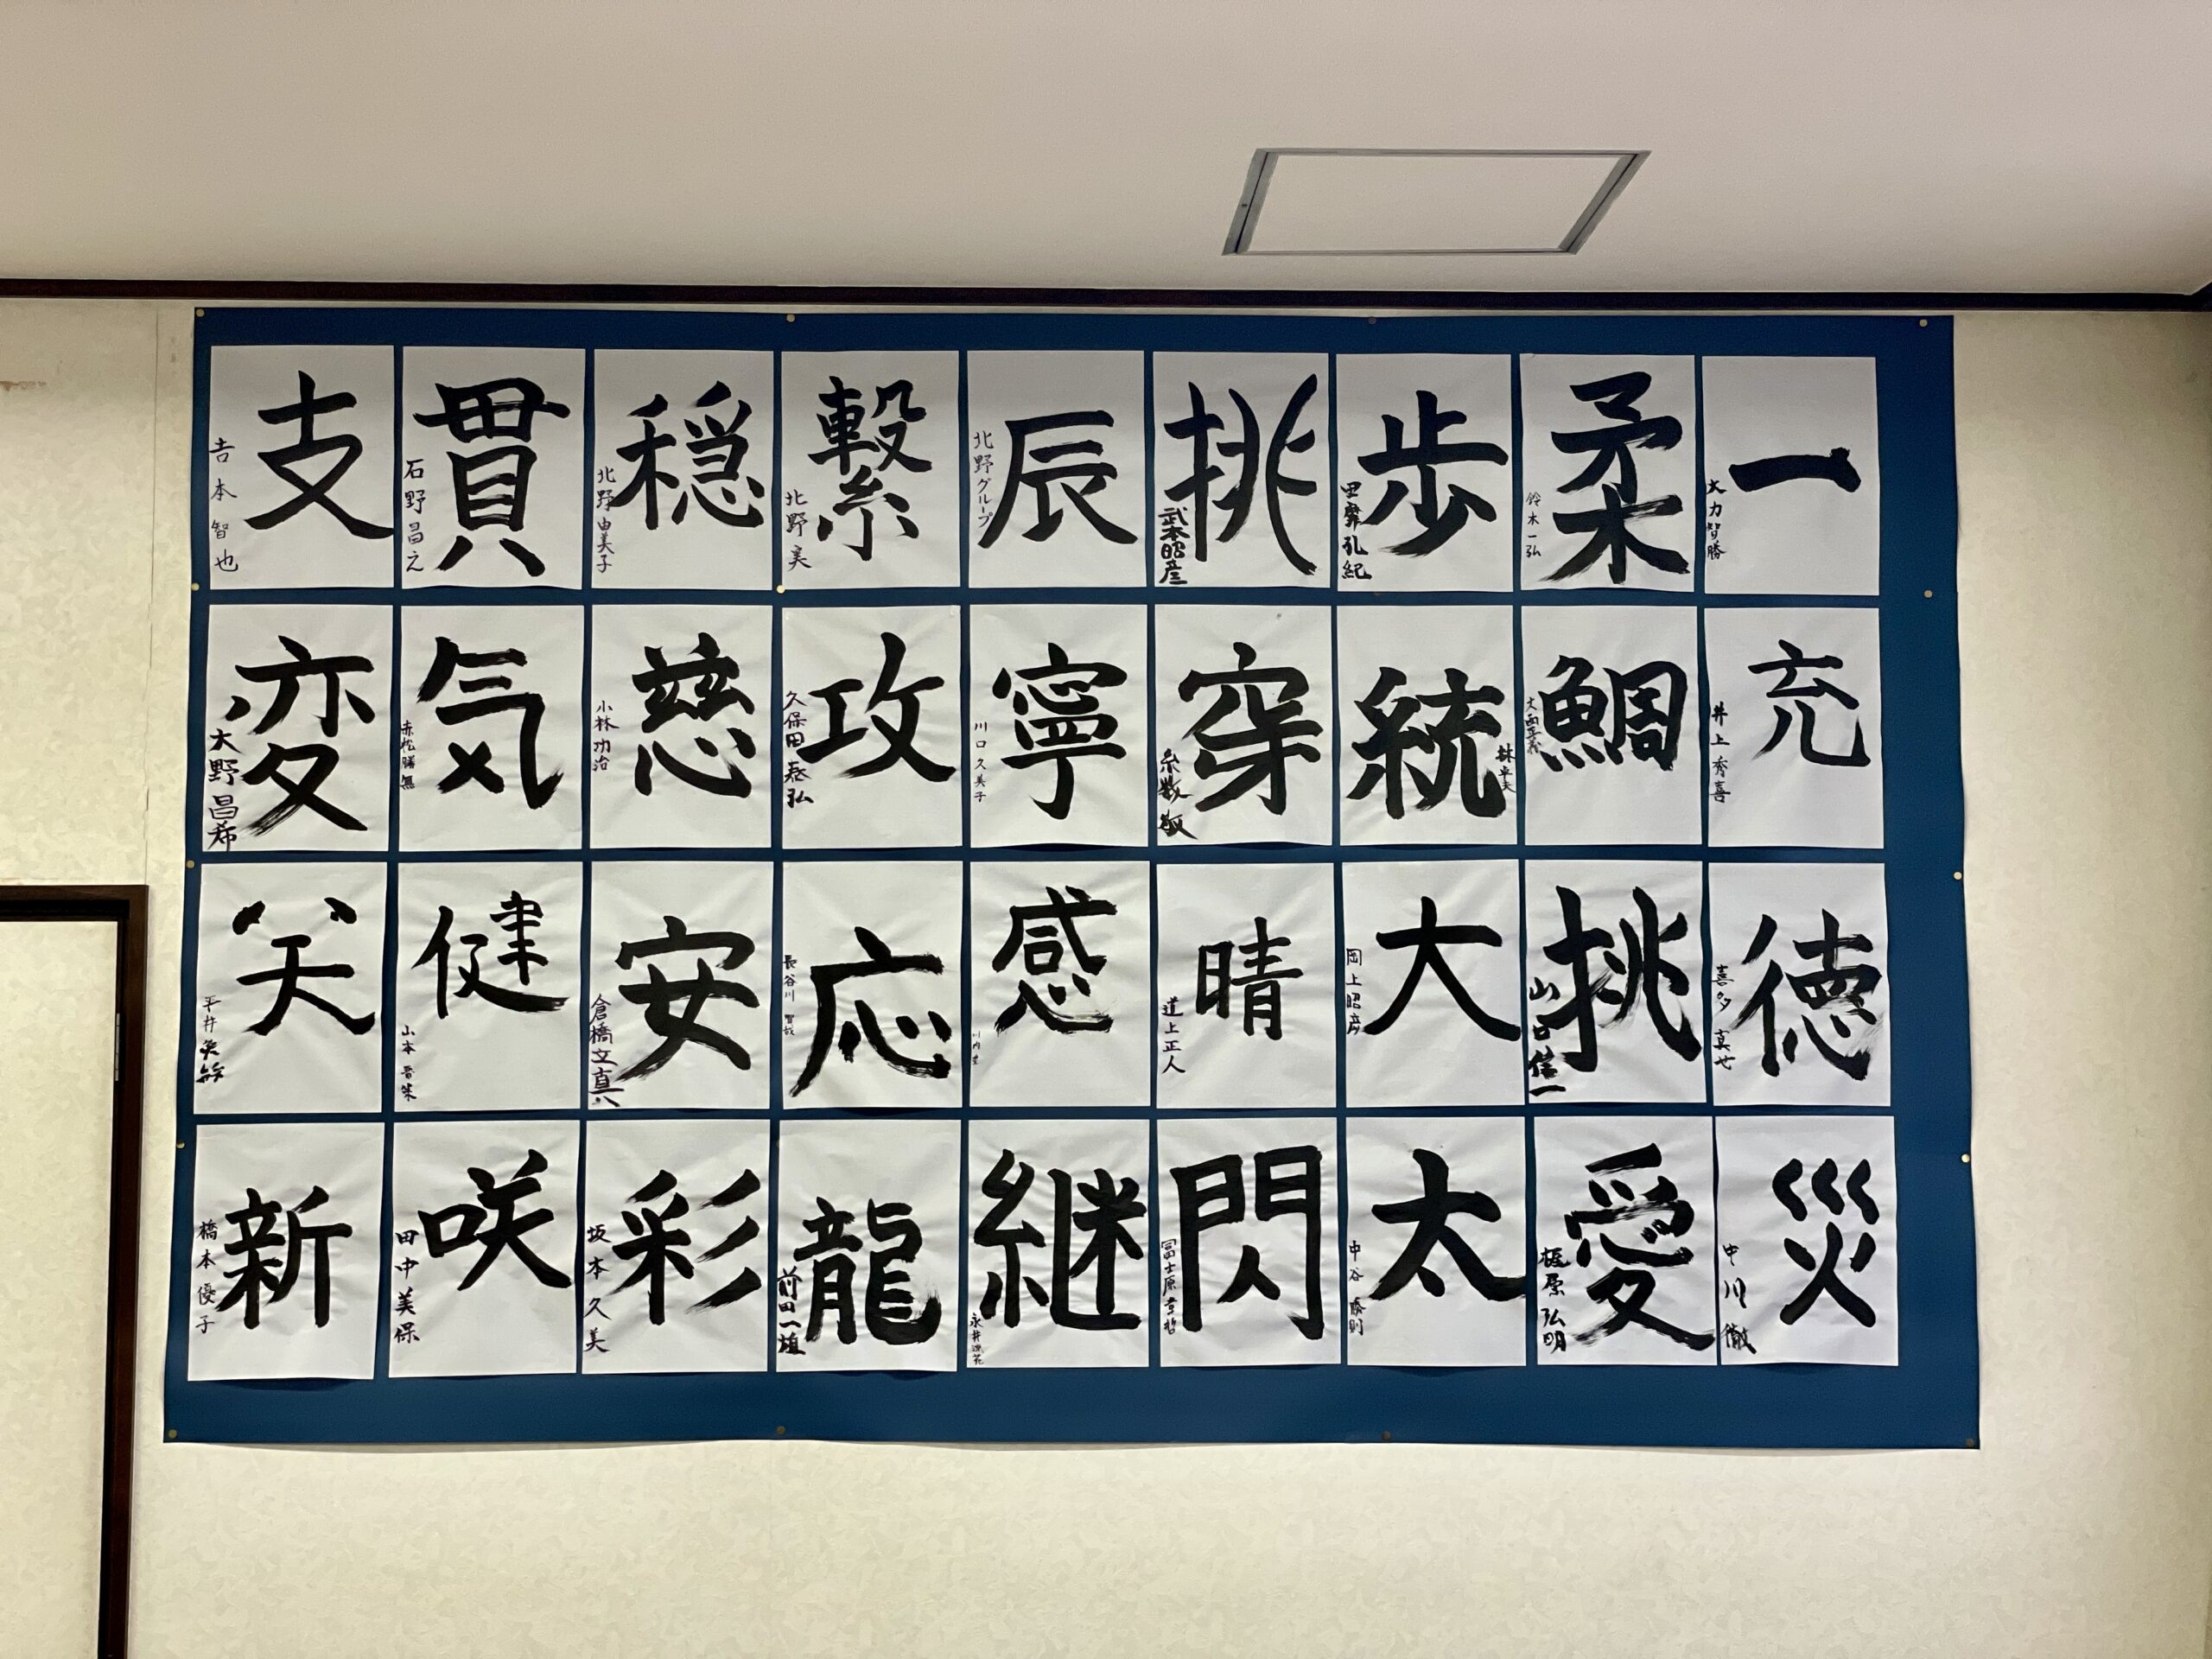 支
吉本智也
貫
石野昌之
穏
北野由美子
繋
北野美
辰
北野グループ
挑
武本昭彦
歩
柔
鈴木一弘
一
大力智勝
変
大野昌希
気
慈
小林功治
攻
寧
川口久美子
穿
糸数
統
林卓夫
鯛
充
井上秀喜
笑
平井
健
山本
安
倉橋
応
長谷川
感
晴
道上正人
大
岡上昭彦
挑
山口
徳
喜多真也
新
橋本優子
咲
田中美保
彩
坂本久美
龍
前田一
継
永井
閃
太
中谷
愛
梶原弘明
災
中川徹